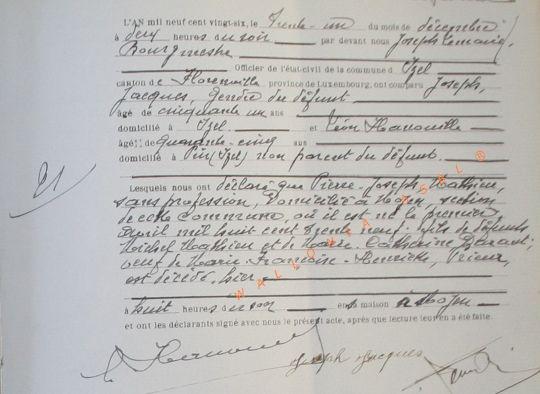 L'AN mil neuf cent vingt-six, le Trente-un du mois de décembre
à deux heures du soir par devant nous Joseph Lemaire,
Bourgmestre
Officier de l'état-civil de la commune d' Izel
canton de Florenville province de Luxembourg, ont comparu Joseph
Jacques, gendre du défunt
âgé de cinquante un ans
domicilié à Izel. et Léon
âgé de quarante-cinq ans
domicilié à Pin (Izel) non parent du défunt.
21
Lesquels nous ont déclaré que Pierre-Joseph Mathieu,
sans profession, domicilié à Moyen, section
de cette commune, où il est né le premier
avril mil huit cent trente neuf, fils de défunts
Michel Mathieu et de Marie Catherine
veuf de Marie-Françoise-Henriette,
est décédé hier
à huit heures du soir en sa maison à Moyen
et ont les déclarants signé avec nous le présent acte, après que lecture leur en a été faite.
Joseph Jacques
WALLONIA ASBL ®